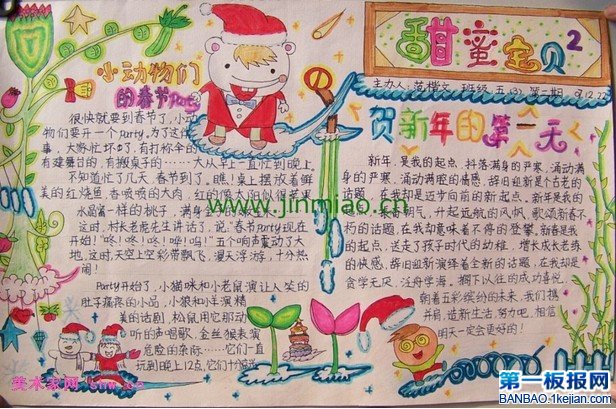 小动物们
的春节Party
很快就要到春节了,小动
物们要开一个party。为了这件
事,大势忙坏了。有打扮伞的
有建舞台的,有搬桌子的……大从早上一直忙到晚上
不知道忙了几天,春节到了。瞧!桌上摆放着鲜
美的红烧鱼 香喷喷的大肉,
水晶葡一样的桃子,满身
这时,村长老虎先生讲话了,说:"春节party现在
开始!"咚!咚!咚!哗!呜!"五个响声震动了大
地,这时,天空上空彩带飘飞,漫天浮游,十分热
闹!
Party开始了,小猫咪和小老鼠演让人笑的
肚子痛疼的小品,小狼和羊演精
美的话剧,松鼠用它那动
听的声唱歌,金丝猴表演
危险的杂际……它们一直
玩到晚上12点,它们
甜蜜宝贝2
主办人: 班级:五(3) 第二期
贺新年的第一天
新年,是我的起点,抖落满身的严寒,涌动满
身的严寒,涌动满腔的情感,辞旧迎新是个古老的
话题,在我却是迈步向前的新起点。新年是我的
朝气,升起远航的风帆,歌颂新春不
朽的话题,在我却意味着不停的登攀,新春是我
的起点,送走了孩子时代的幼稚,增长成长老练
的快感,辞旧迎新演绎着全新的话题,在我却是
贪学无厌,泛舟学海,搁下以往的成功喜悦,
朝着五彩缤纷的未来,我们携
并肩,造新生活,努力吧,相信
明天一定会更好的!
www.jinmiao.cn
美术家网
第一板报网
BANBAO.1kejian.com